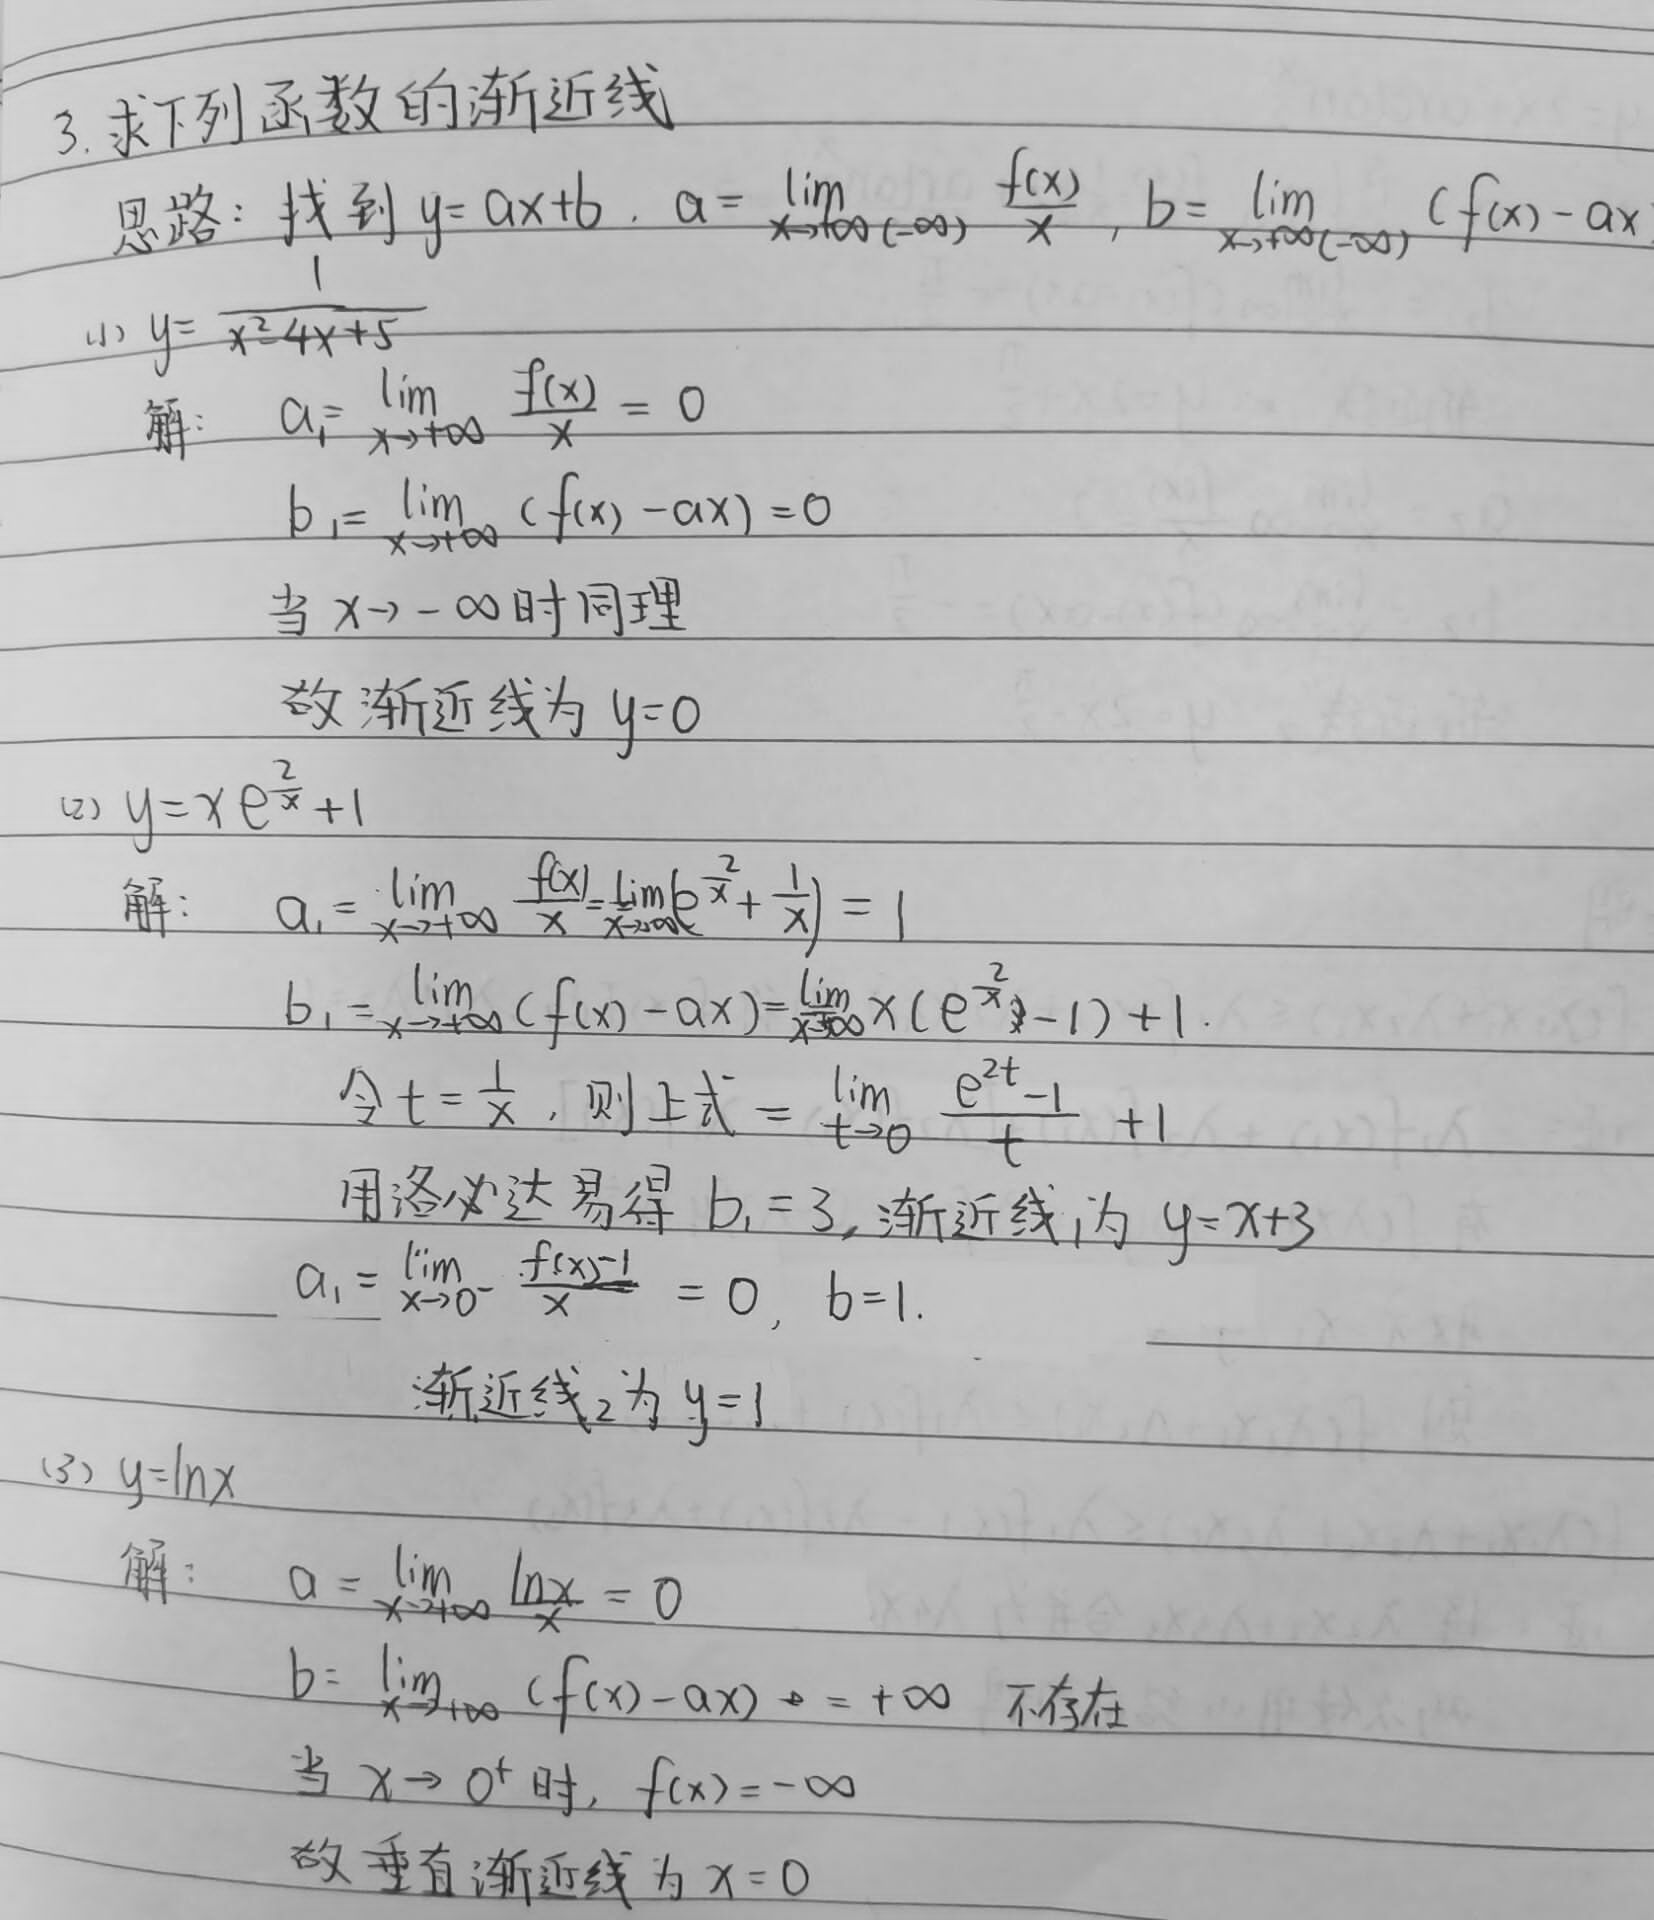 3. 求下列函数的渐近线
思路: 找到 y=ax+b. a= lim x→+∞(-∞) f(x)/x, b= lim x→+∞(-∞) (f(x)-ax)
(1) y= 1/(x²-4x+5)
解: a₁= lim x→+∞ f(x)/x = 0
b₁= lim x→+∞ (f(x)-ax)=0
当 x→-∞时同理
故渐近线为 y=0
(2) y=xe^(2/x)+1
解: a₁= lim x→+∞ f(x)/x = lim x→∞ (e^(2/x)+1/x) = 1
b₁= lim x→+∞ (f(x)-ax)= lim x→∞ x(e^(2/x)-1)+1.
令 t=1/x, 则上式= lim t→0 (e^(2t)-1)/t +1
用洛必达易得 b₁=3, 渐近线₁为 y=x+3
a₁= lim x→0⁻ (f(x)-1)/x = 0, b=1.
渐近线₂为 y=1
(3) y=lnx
解: a= lim x→+∞ lnx/x = 0
b= lim x→+∞ (f(x)-ax) = +∞ 不存在
当 x→0⁺时, f(x)=-∞
故垂直渐近线为 x=0